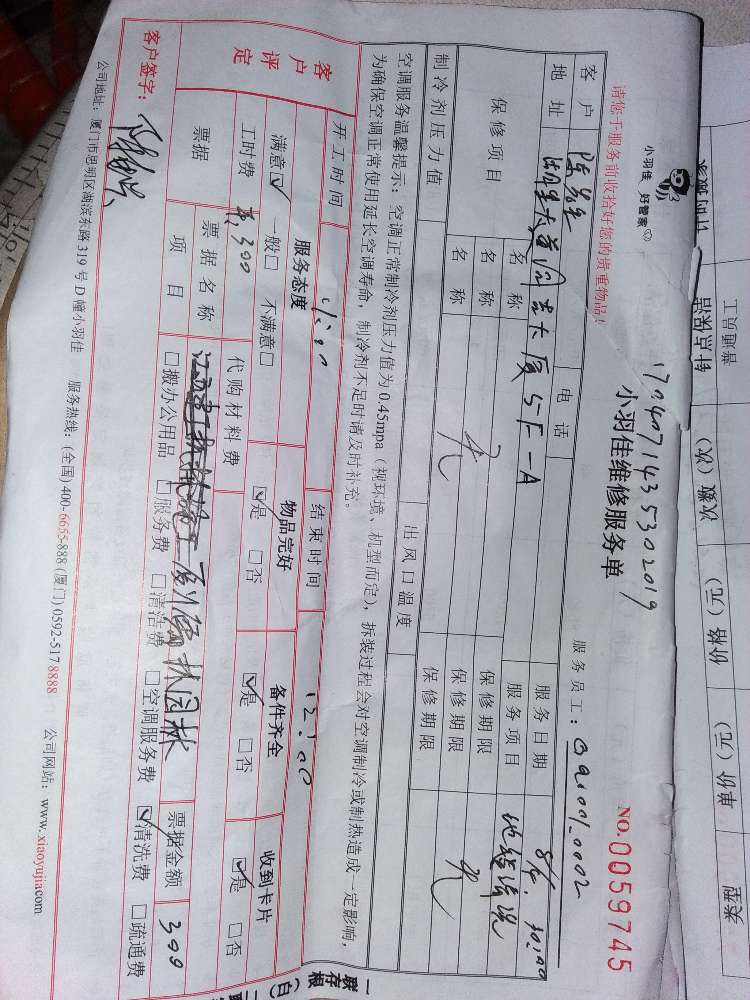 小羽佳 好管家
17040714353020​19
小羽佳维修服务单
NO.0059745
请您于服务前收拾好您的贵重物品！
服务员工：
客户
电话
服务日期
8/4. 10:00
地址
5F-A
服务项目
地毯清洗
保修项目
名称
保修期限
名称
保修期限
名称
保修期限
制冷剂压力值
出风口温度
空调服务温馨提示：空调正常制冷剂压力值为0.45mpa（视环境、机型而定），拆装过程会对空调制冷或制热造成一定影响，
为确保空调正常使用延长空调寿命，制冷剂不足时请及时补充。
开工时间
结束时间
12:00
客户评定
服务态度
物品完好
备件齐全
收到卡片
满意☑ 一般□ 不满意□
☑是 □否
☑是 □否
☑是 □否
工时费
300
代购材料费
票据
票据名称
园林
票据金额
300
项目
□搬办公用品 □服务费 □清洁费 □空调服务费 ☑清洗费 □疏通费
客户签字：
公司地址：厦门市思明区湖滨东路319号D幢小羽佳 服务热线：(全国)400-6655-888 (厦门)0592-517 8888 公司网站：www.xiaoyujia.com
一联存根（白）
普通员工
针点保洁
次数（次）
价格（元）
单价（元）
类型